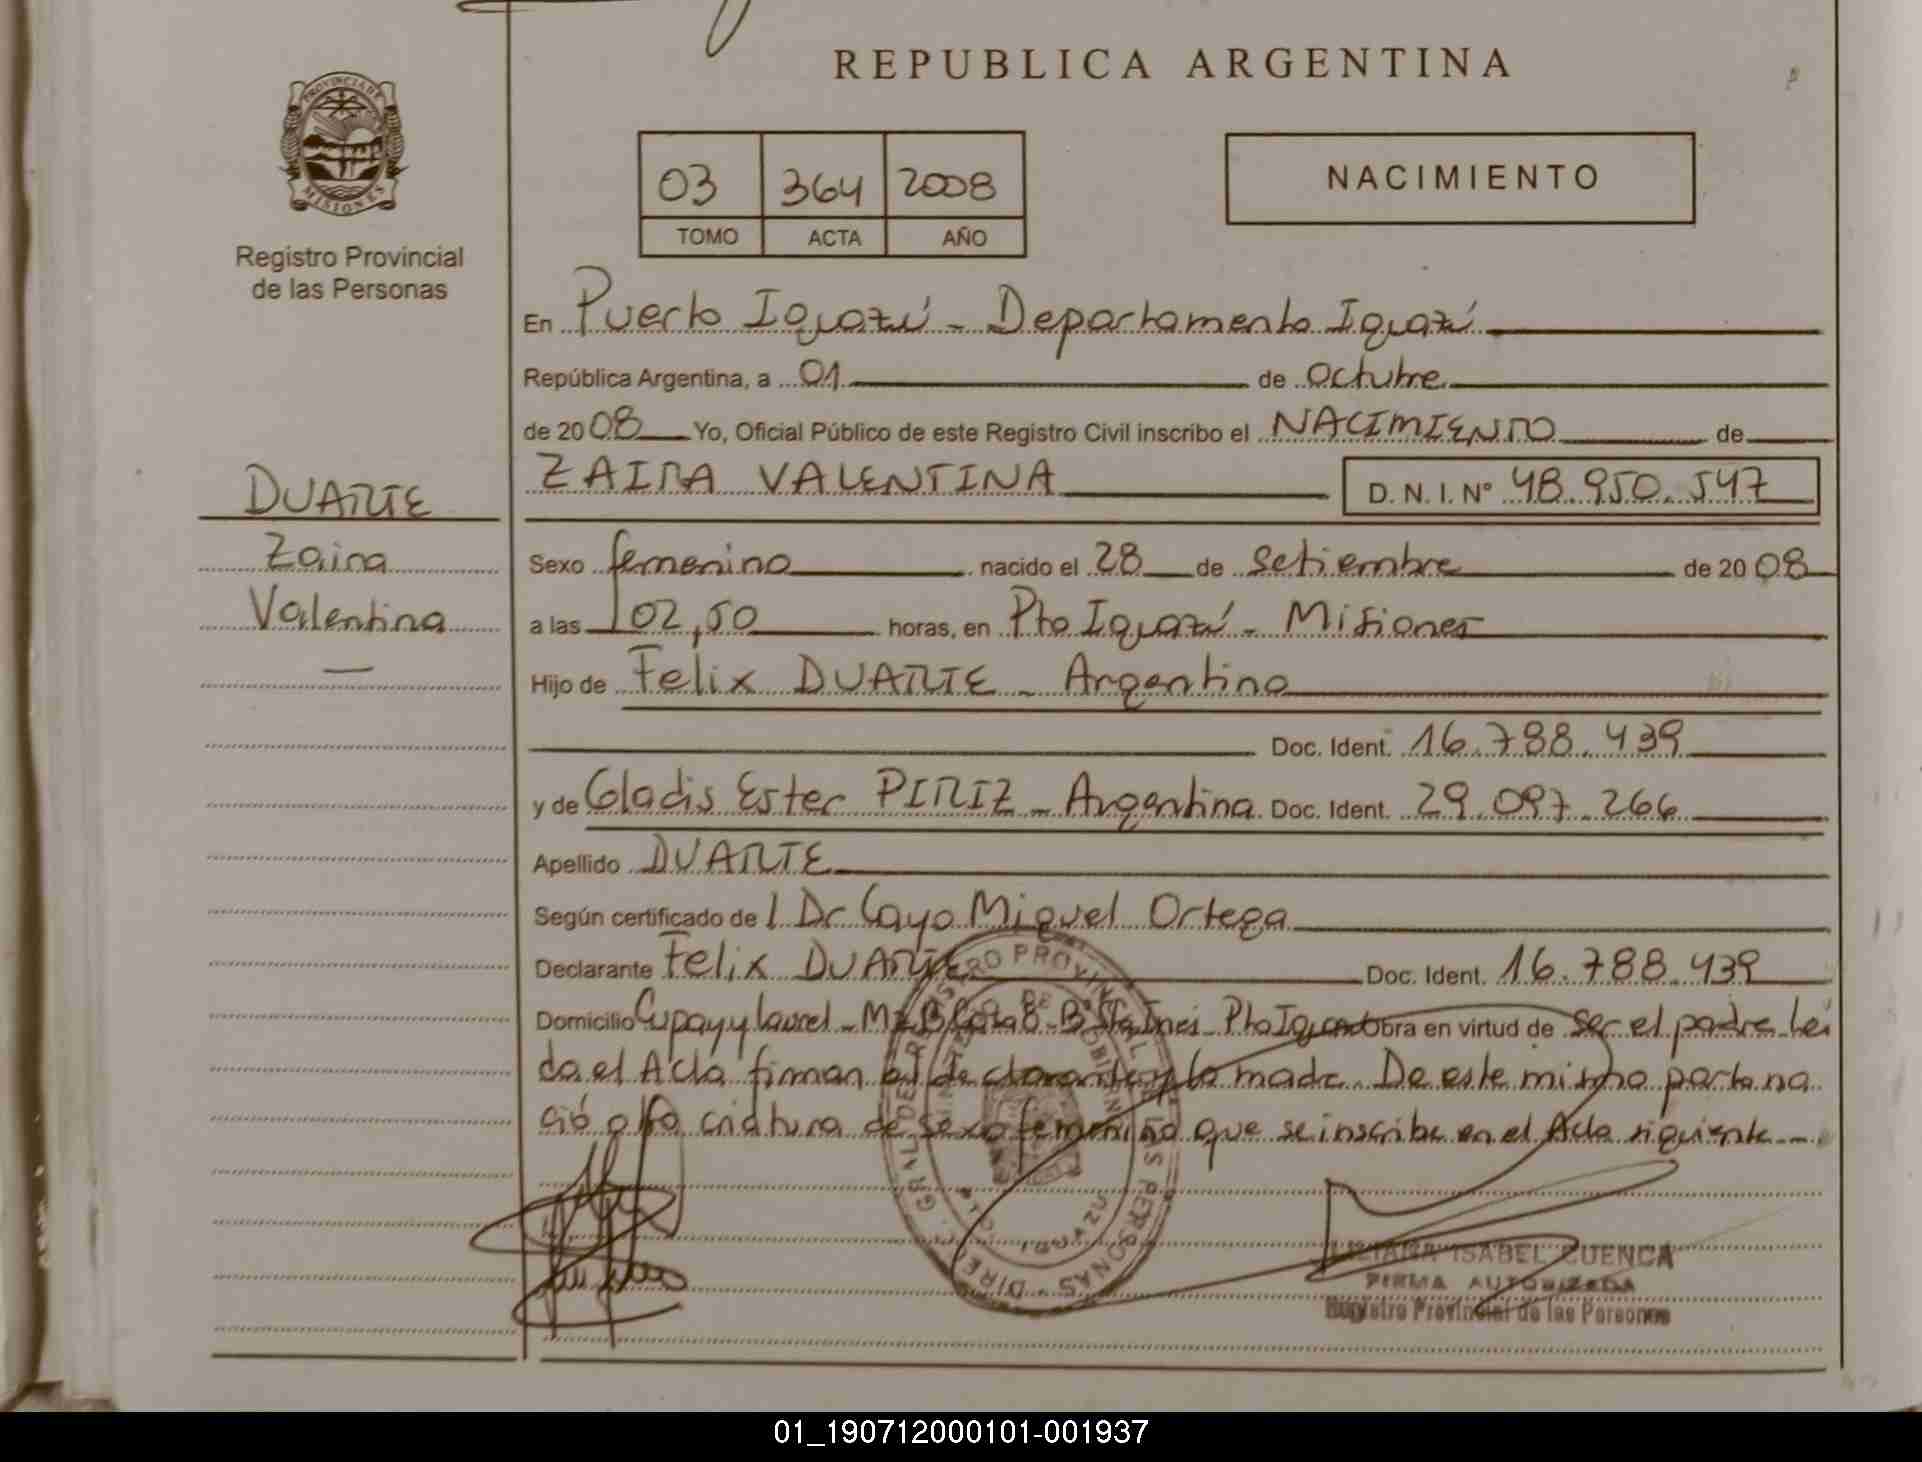 REPUBLICA ARGENTINA
PROVINCIA DE MISIONES
Registro Provincial
de las Personas
03 364 2008
TOMO ACTA AÑO
NACIMIENTO
En Puerto Iguazú - Departamento Iguazú
República Argentina, a 01 de octubre
de 2008 Yo, Oficial Público de este Registro Civil inscribo el NACIMIENTO de
ZAIRA VALENTINA D. N. I. Nº 48.950.547
DUARTE
Zaira
Valentina
Sexo femenino nacido el 28 de setiembre de 2008
a las 02,50 horas, en Pto Iguazú - Misiones
Hijo de Felix DUARTE - Argentino
Doc. Ident. 16.788.439
y de Gladis Ester PIRIZ - Argentina Doc. Ident. 29.097.266
Apellido DUARTE
Según certificado de l Dr Cayo Miguel Ortega
Declarante Felix DUARTE Doc. Ident. 16.788.439
Domicilio Cupay y laurel - Mz B Casa 8 - Bº Sta Ines - Pto Iguazú Obra en virtud de Ser el padre Lei
da el Acta firman el declarante y la madre. De este mismo parto na
ció otra criatura de sexo femenino que se inscribe en el Acta siguiente -
DIRE. GRAL DE REGISTRO PROVINCIAL DE LAS PERSONAS
LILIANA ISABEL CUENCA
FIRMA AUTORIZADA
Registro Provincial de las Personas
01_190712000101-001937